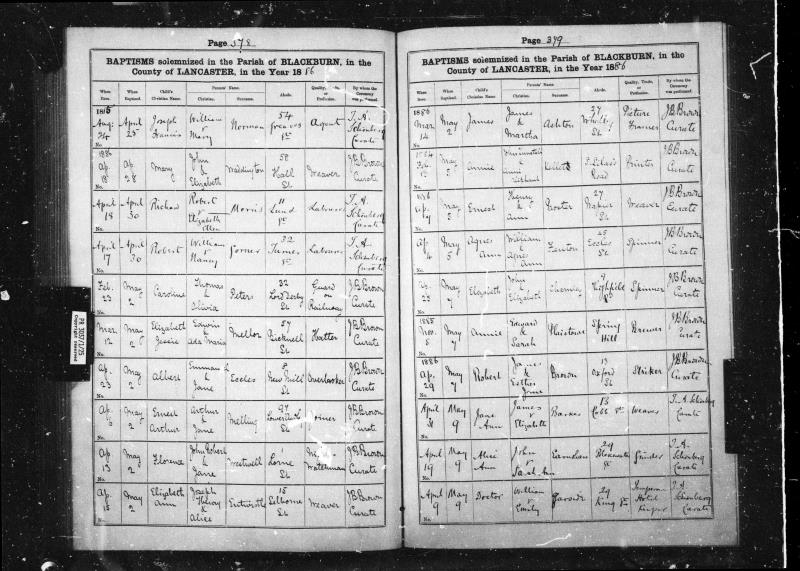 Page 378
BAPTISMS solemnized in the Parish of BLACKBURN, in the
County of LANCASTER, in the Year 1886
When Born. When Baptized. Child's Christian Name. Parents' Name. Christian. Surname. Abode. Quality, Trade, or Profession. By whom the Ceremony was performed.
1885 Aug. 24 April 25 Joseph Francis William & Mary Norman 54 Greaves St Agent T. A. Schonberg Curate
1886 Ap. 18 Ap. 28 Mary John & Elizabeth Waddington 58 Hall St Weaver J B Brown Curate
April 18 April 30 Richard Robert & Elizabeth Ellen Morris 11 Lund St Labourer T. A. Schonberg Curate
April 17 April 30 Robert William & Nancy 32 James St Labourer T. A. Schonberg Curate
Feb. 23 May 2 Caroline Thomas & Olivia Peters 32 Lord Derby St Guard on Railway J B Brown Curate
Mar. 12 May 2 Elizabeth Jessie Edwin & Ada Maria Mellor 57 St Hatter J B Brown Curate
Ap. 23 May 2 Albert & Jane Eccles 8 New Mill St Overlooker J B Brown Curate
Ap. May 2 Ernest Arthur Arthur & Jane Melling 97 St Joiner J B Brown Curate
Ap. 13 May 2 Florence John Robert & Jane 1 Lorne St Night Watchman J B Brown Curate
Ap. 15 May 2 Elizabeth Ann Joseph & Alice Entwistle 15 Selborne St Weaver J B Brown Curate
Page 379
BAPTISMS solemnized in the Parish of BLACKBURN, in the
County of LANCASTER, in the Year 1886
When Born. When Baptized. Child's Christian Name. Parents' Name. Christian. Surname. Abode. Quality, Trade, or Profession. By whom the Ceremony was performed.
1886 Mar. 14 May 2 James James & Martha Ashton 27 St Picture Framer J B Brown Curate
Feb. May Annie Road Printer J B Brown Curate
1886 May 5 Ernest Henry & Ann 27 St Weaver J B Brown Curate
Ap. 4 May 5 Agnes Ann William & Agnes Ann Fenton 45 Eccles St Spinner J B Brown Curate
Ap. 23 May 7 Elizabeth John & Elizabeth 9 Highfield St Spinner J B Brown Curate
1885 Nov. 8 May 7 Annie Edward & Sarah Spring Hill Brewer J B Brown Curate
1886 Ap. 29 May 7 Robert James & Esther Jane Brown 13 Oxford St Striker J B Brown Curate
April May 9 Jane Ann James & Elizabeth Barkes 13 Cobb St Weaver T. A. Schonberg Curate
April 19 May 9 Alice Ann John & Sarah Ann Earnshaw 29 St Grinder T. A. Schonberg Curate
April 9 May 9 Doctor William & Emily 29 King St Temperance Hotel Keeper T. A. Schonberg Curate
PR 3057/1/25
Copyright reserved